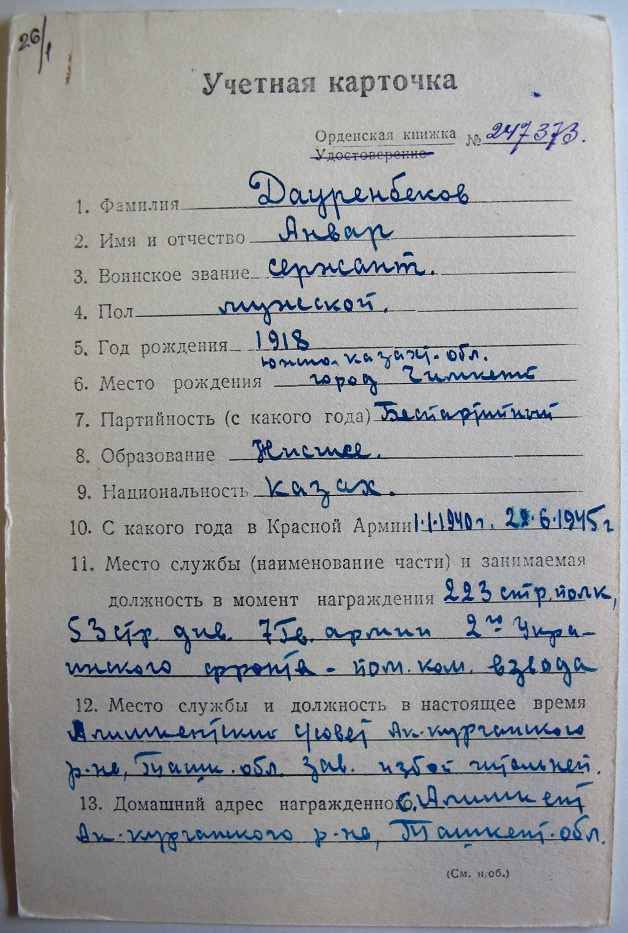 26/1
Учетная карточка
Орденская книжка № 247373.
Удостоверение
1. Фамилия Дауренбеков
2. Имя и отчество Анвар
3. Воинское звание сержант.
4. Пол мужской.
5. Год рождения 1918
южно-казахт. обл.
6. Место рождения город Чимкент
7. Партийность (с какого года) Беспартийный
8. Образование Нисшее.
9. Национальность казах.
10. С какого года в Красной Армии 1.1.1940г. 6.1945г
11. Место службы (наименование части) и занимаемая
должность в момент награждения 223 стр. полк,
53 стр. див. 7 Гв. армии 2го Укра-
инского фронта - пом. ком. взвода
12. Место службы и должность в настоящее время
Алимкентский с/совет Ак-курганского
р-на, Ташк. обл. Зав. избой читальней.
13. Домашний адрес награжденного с. Алимкент
Ак-курганского р-на, Ташкент. обл.
(См. н/об.)